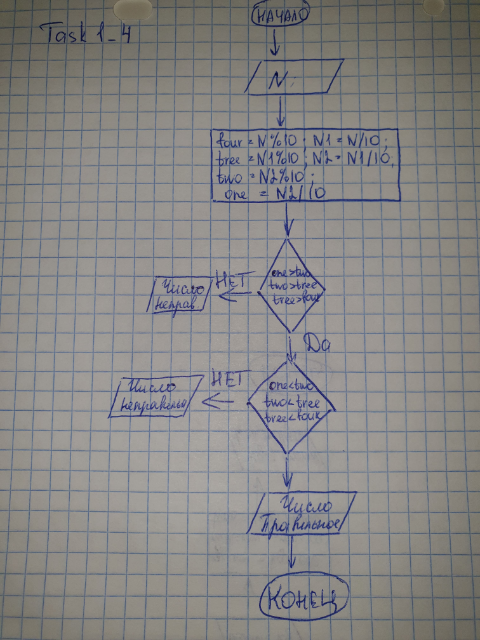 Task 1_4
НАЧАЛО
N
four = N%10 ; N1 = N/10 ;
tree = N1%10 ; N2 = N1/10,
two = N2%10 ;
one = N2/10
one>two
two>tree
tree>four
НЕТ
Число
неправ
Да
one<two
two<tree
tree<four
НЕТ
Число
неправильно
Число
Правильное
КОНЕЦ